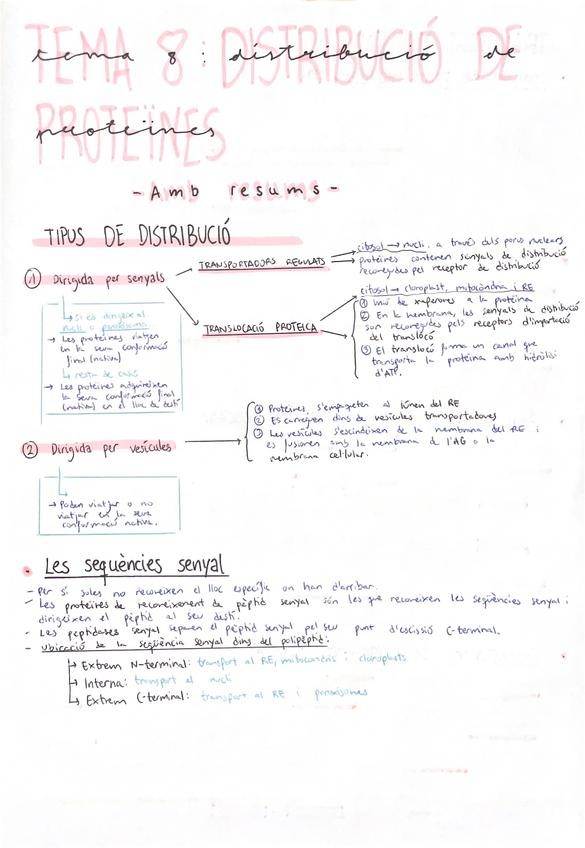 TEMA 8: DISTRIBUCIÓ DE
tema 8: distribució de
PROTEÏNES
proteïnes
- Amb resums -
TIPUS DE DISTRIBUCIÓ
① Dirigida per senyals
TRANSPORTADORS REGULATS
citosol → nucli, a través dels porus nuclears
proteïnes contenen senyals de distribució
reconegudes pel receptor de distribució
TRANSLOCACIÓ PROTEICA
citosol → cloroplast, mitocòndria i RE
① Unió de xaperones a la proteïna
② En la membrana, les senyals de distribució
són reconegudes pels receptors d'importació
del translocó
③ El translocó forma un canal que
transporta la proteïna amb hidròlisi
d'ATP.
→ Si es dirigeix al
nucli o peroxisoma
→ Les proteïnes viatgen
en la seva conformació
final (nativa)
↳ resta de casos
→ Les proteïnes adquireixen
la seva conformació final
(nativa) en el lloc de destí
② Dirigida per vesícules
① Proteïnes, s'empaqueten al lumen del RE
② Es carreguen dins de vesícules transportadores
③ Les vesícules s'escindeixen de la membrana del RE i
es fusionen amb la membrana de l'AG o la
membrana cel·lular.
→ Poden viatjar o no
viatjar en la seva
conformació nativa.
• Les seqüències senyal
- Per si soles no reconeixen el lloc específic on han d'arribar.
- Les proteïnes de reconeixement de pèptid senyal són les que reconeixen les seqüències senyal i
dirigeixen el pèptid al seu destí.
- Les peptidases senyal separen el pèptid senyal pel seu punt d'escissió C-terminal.
- Ubicació de la seqüència senyal dins del polipèptid:
→ Extrem N-terminal: transport al RE, mitocondris i cloroplasts
→ Interna: transport al nucli
↳ Extrem C-terminal: transport al RE i peroxisomes